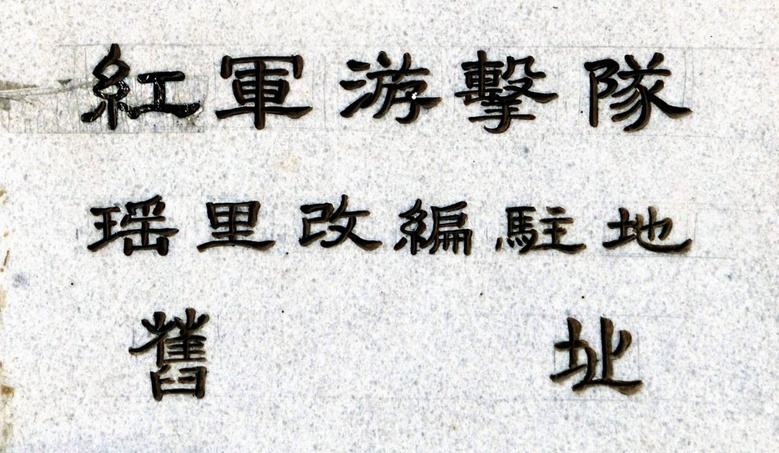 紅軍游擊隊
瑶里改編駐地
舊址